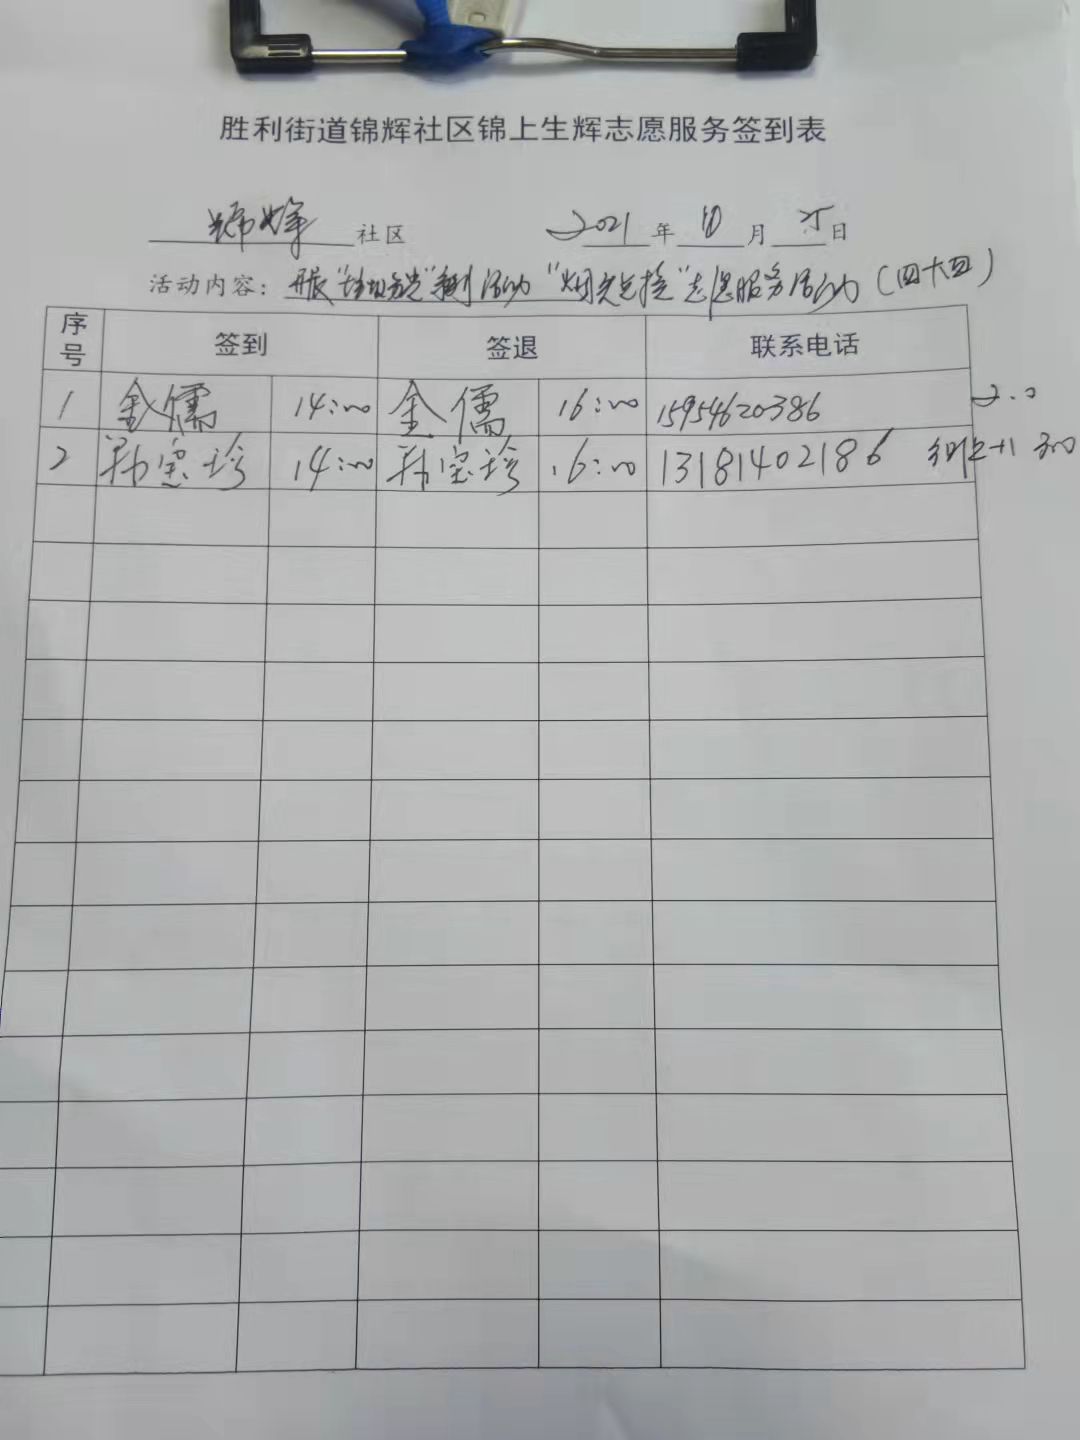 胜利街道锦辉社区锦上生辉志愿服务签到表
锦辉 社区 2021 年 10 月 日
活动内容： 开展 活动 志愿服务活动 (四十四)
序号 签到 签退 联系电话
1 金儒 14:00 金儒 16:00 15954620386 2.0
2 宝珍 14:00 宝珍 16:00 13181402186